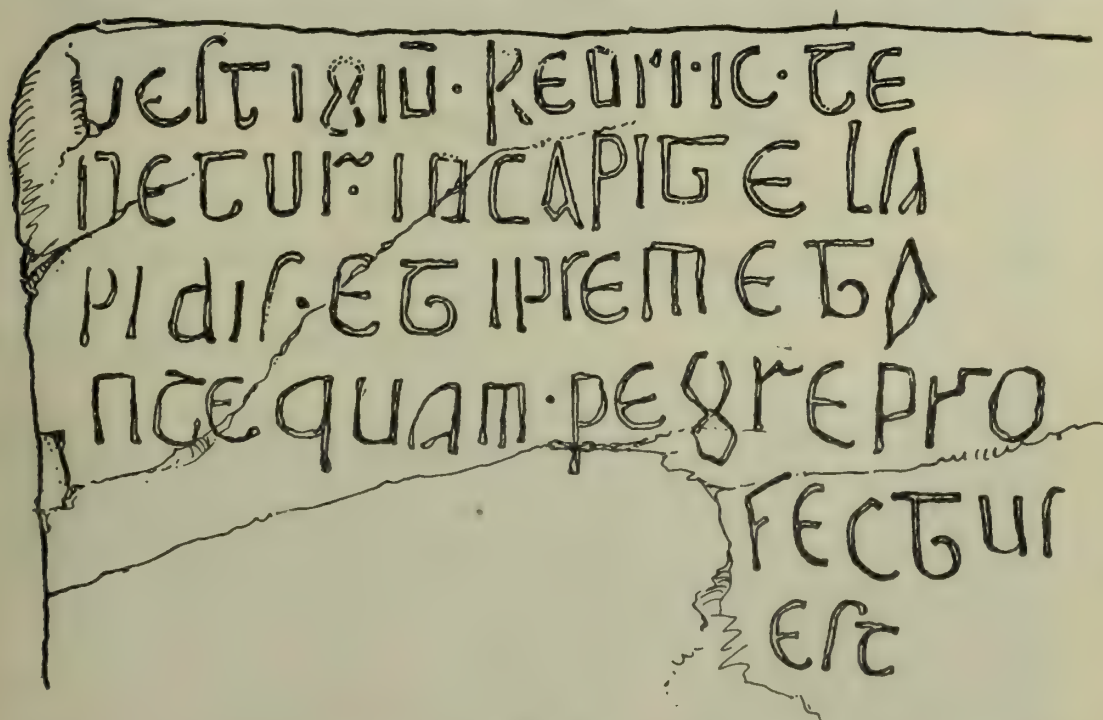 uestigiū · Reūri·ic · te
netur̃ · in capite la
pidis · et ipsemet a
ntequam · pegre pro
fectus
est